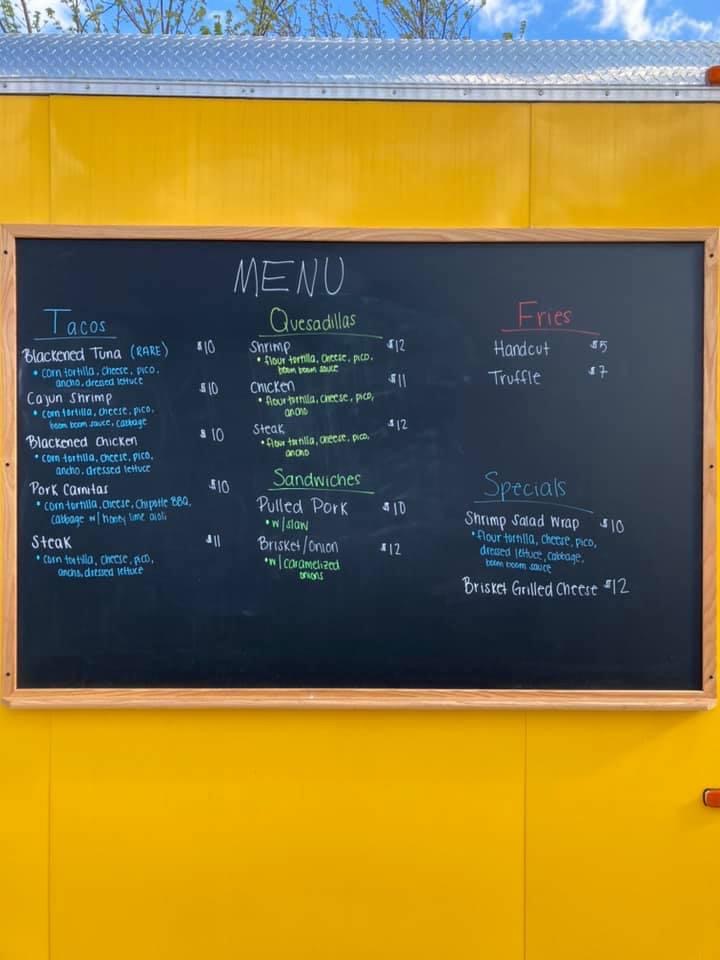 MENU
Tacos
Blackened Tuna (RARE) $10
• corn tortilla, cheese, pico,
ancho, dressed lettuce
Cajun Shrimp $10
• corn tortilla, cheese, pico,
boom boom sauce, cabbage
Blackened Chicken $10
• corn tortilla, cheese, pico,
ancho, dressed lettuce
Pork Carnitas $10
• corn tortilla, cheese, chipotle BBQ,
cabbage w/ honey lime aioli
Steak $11
• corn tortilla, cheese, pico,
ancho, dressed lettuce
Quesadillas
Shrimp $12
• flour tortilla, cheese, pico,
boom boom sauce
Chicken $11
• flour tortilla, cheese, pico,
ancho
Steak $12
• flour tortilla, cheese, pico,
ancho
Sandwiches
Pulled Pork $10
• w/slaw
Brisket/Onion $12
• w/caramelized
onions
Fries
Handcut $5
Truffle $7
Specials
Shrimp Salad Wrap $10
• flour tortilla, cheese, pico,
dressed lettuce, cabbage,
boom boom sauce
Brisket Grilled Cheese $12